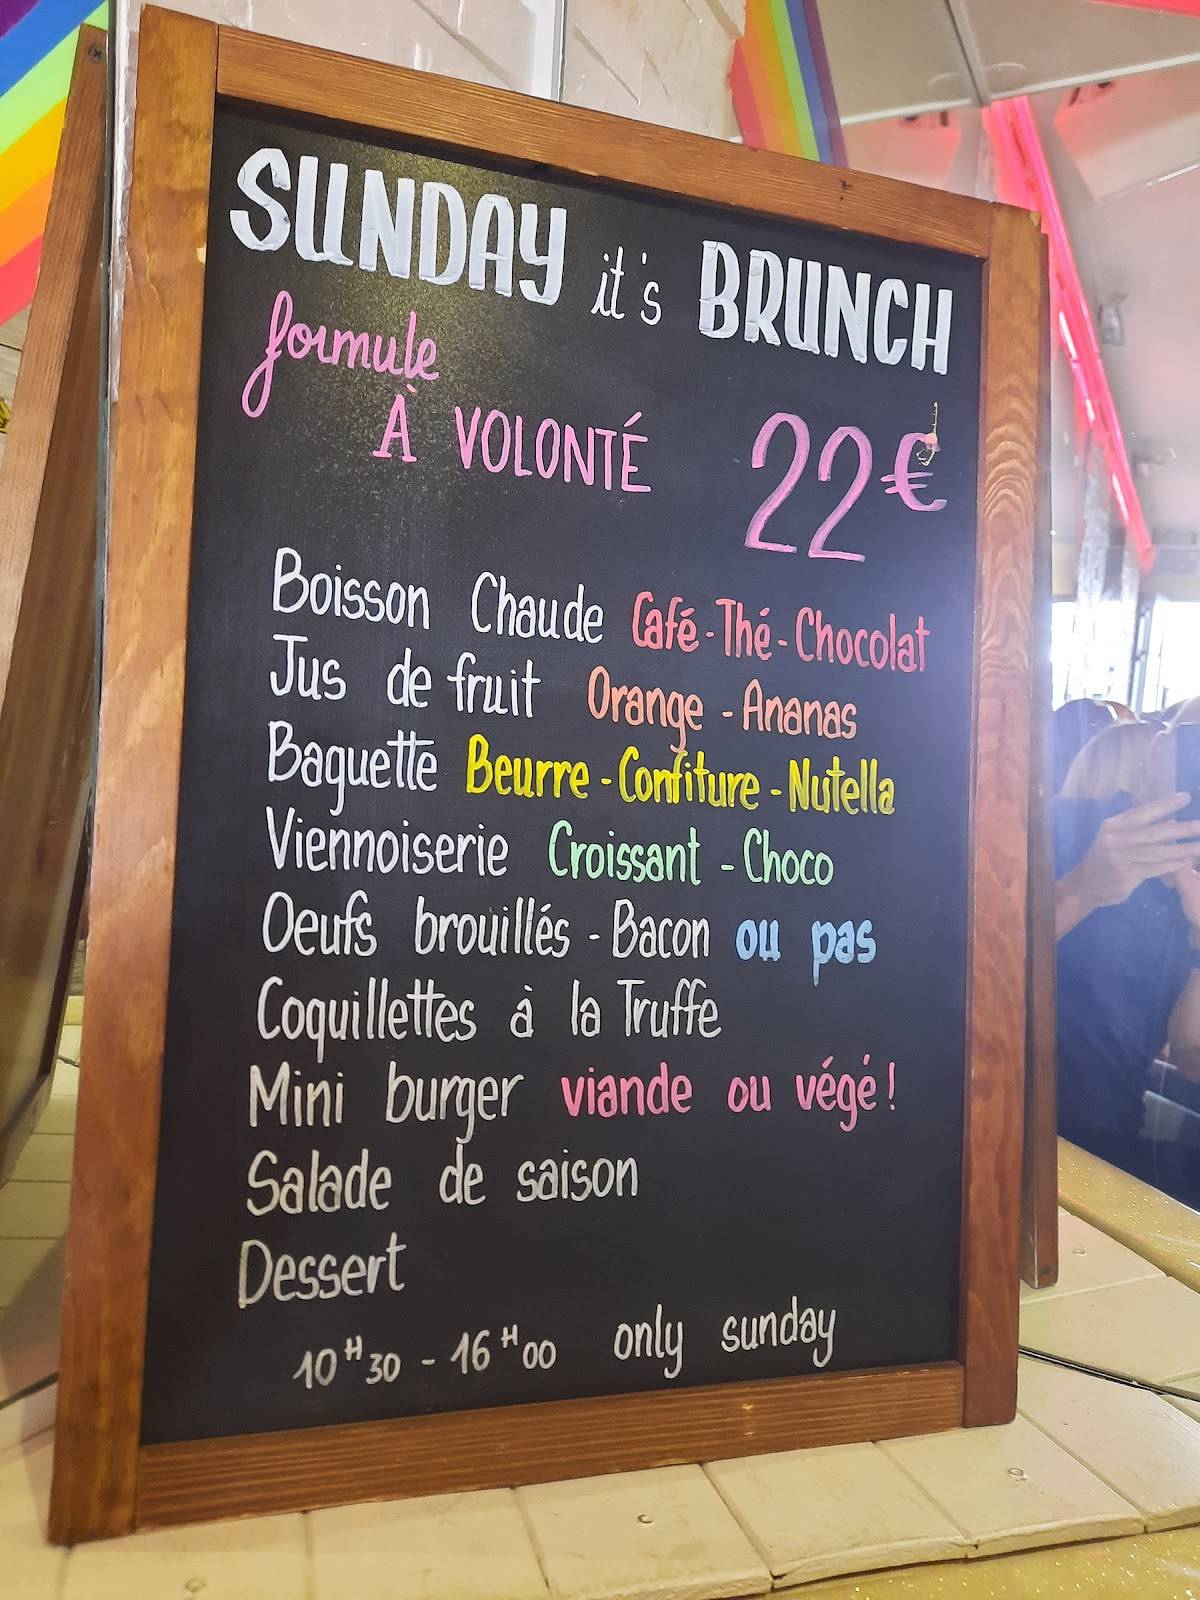 SUNDAY it's BRUNCH
formule
À VOLONTÉ 22€
Boisson Chaude Café-Thé-Chocolat
Jus de fruit Orange - Ananas
Baguette Beurre-Confiture-Nutella
Viennoiserie Croissant - Choco
Oeufs brouillés - Bacon ou pas
Coquillettes à la Truffe
Mini burger viande ou végé!
Salade de saison
Dessert
10H30 - 16H00 only sunday